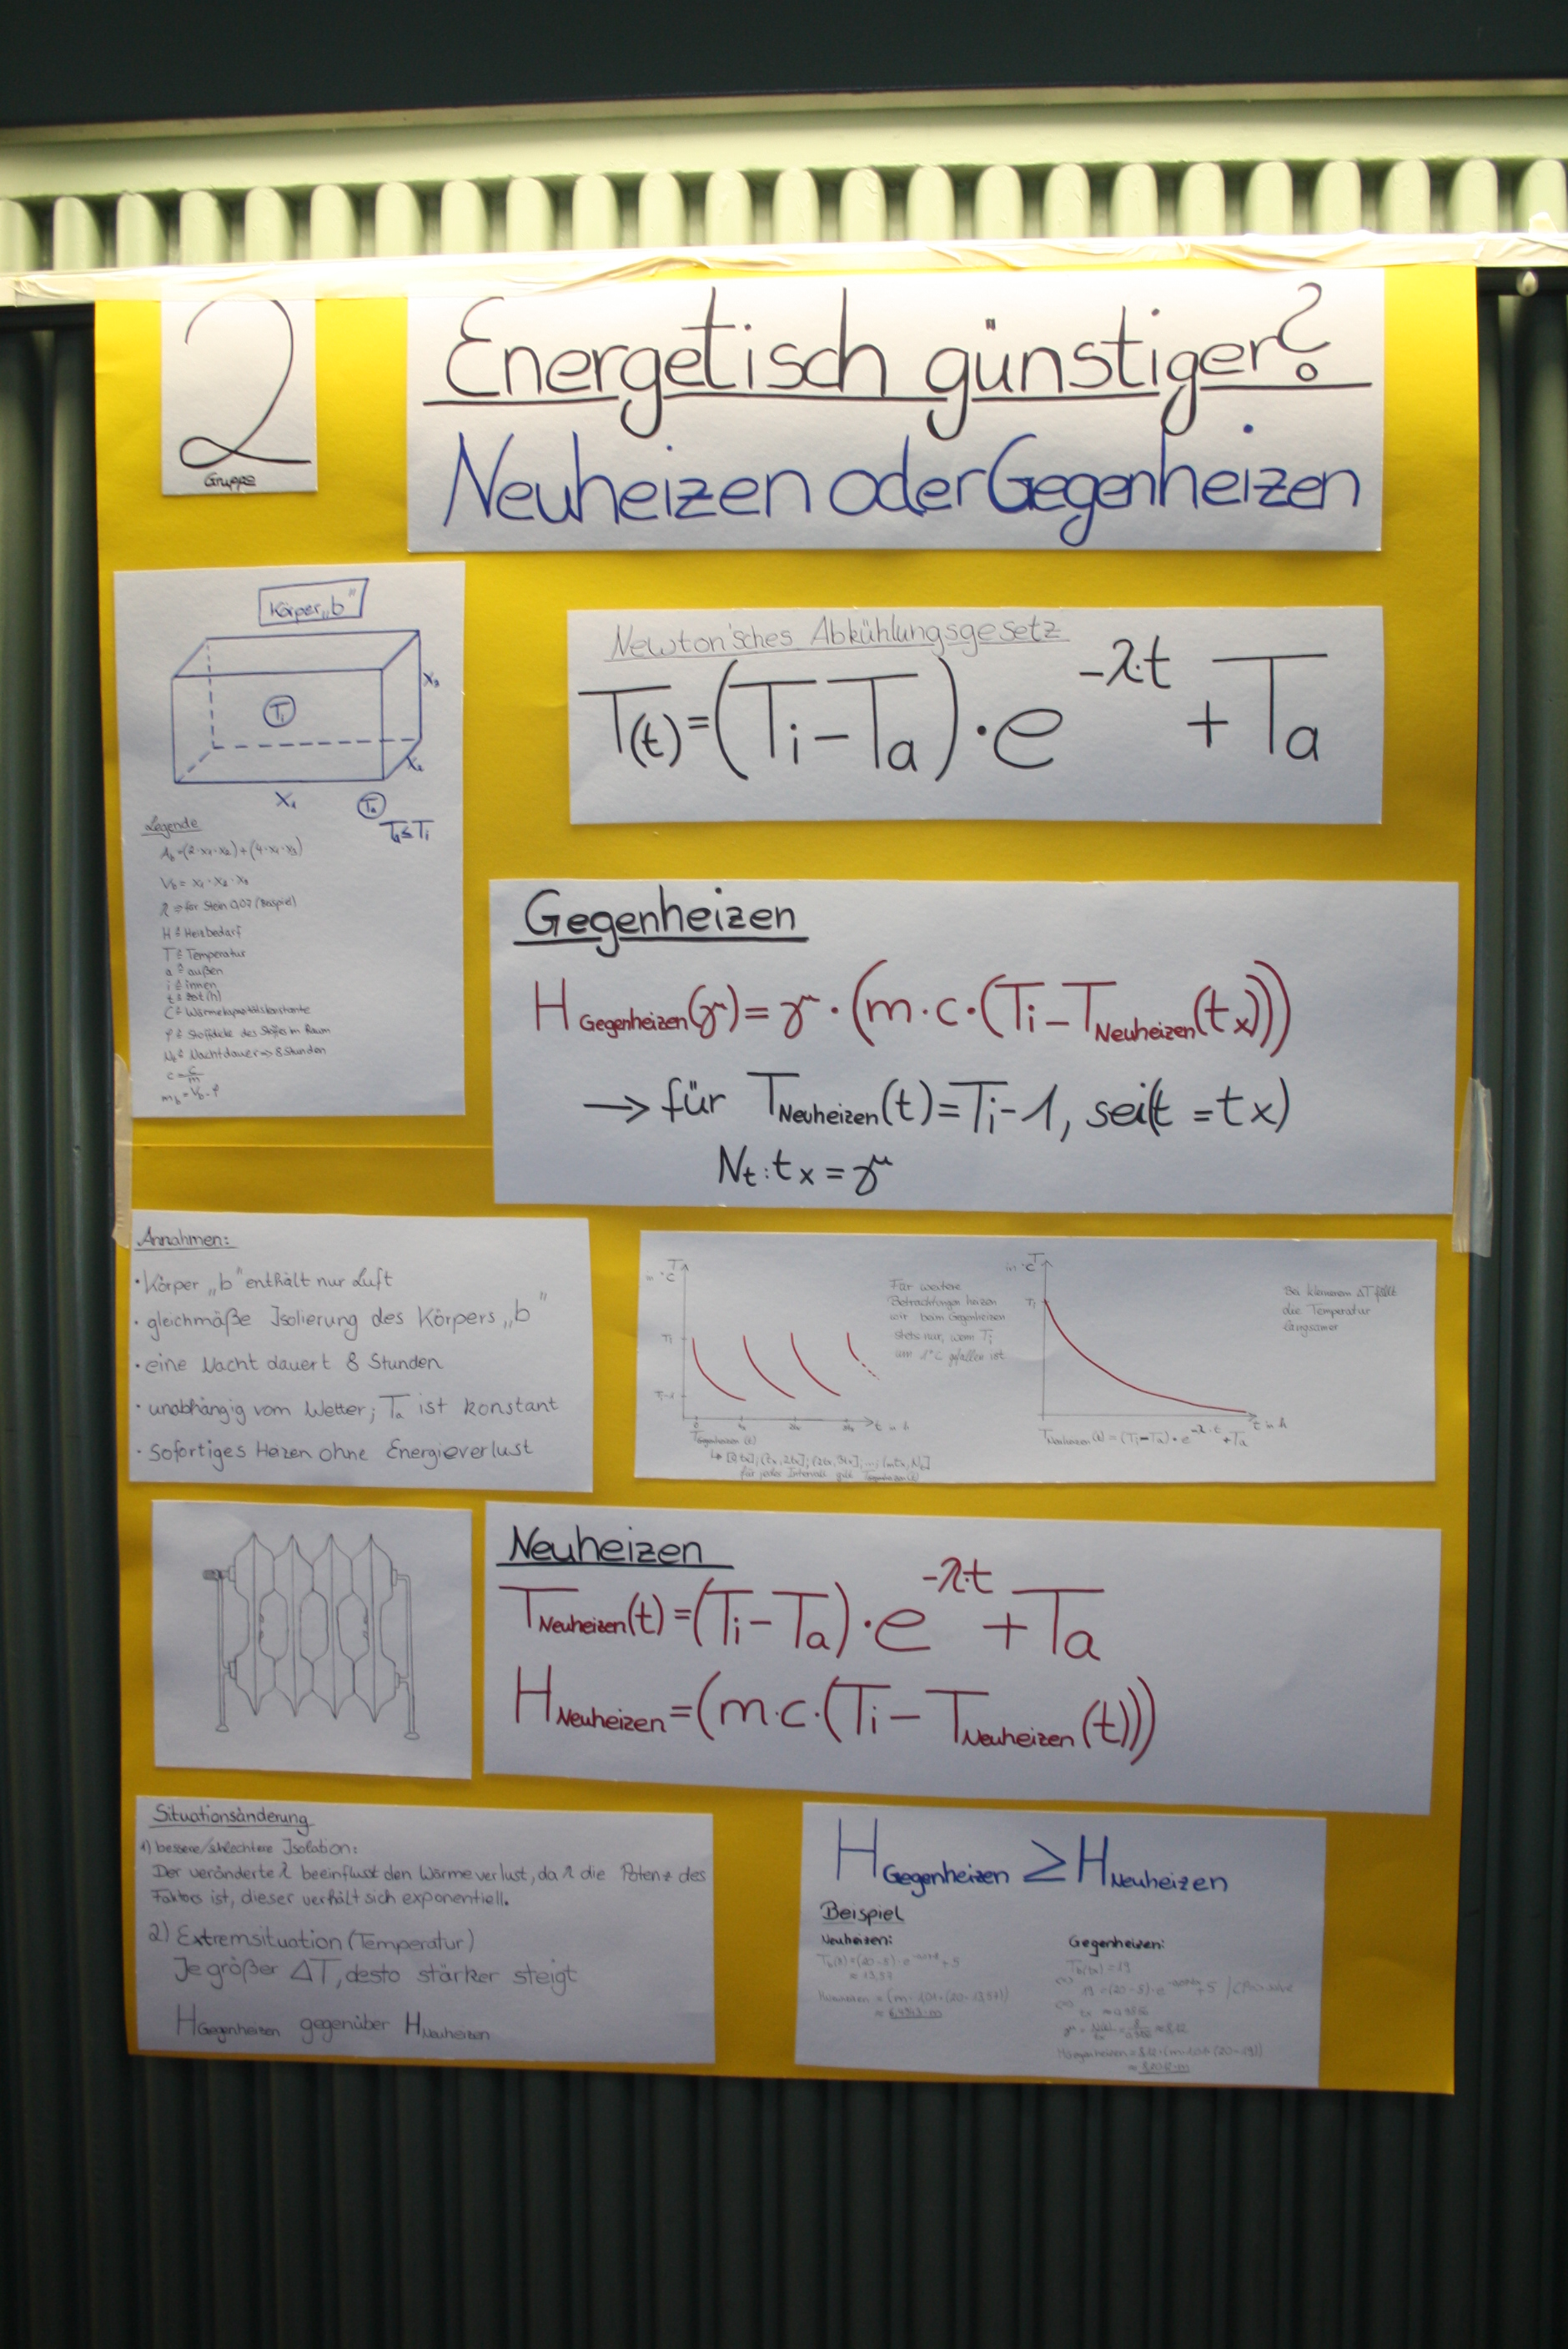 2
Gruppe
Energetisch günstiger?
Neuheizen oder Gegenheizen
Körper „b"
Ti
x3
x2
x1
Ta
Ta≤Ti
Legende
Ab=(2·x1·x2)+(4·x1·x3)
Vb= x1·x2·x3
λ ⇒ für Stein 0,07 (Beispiel)
H ≙ Heizbedarf
T ≙ Temperatur
a ≙ außen
i ≙ innen
t ≙ Zeit (h)
C ≙ Wärmekapazitätskonstante
ρ ≙ Stoffdichte des Stoffes im Raum
Nt ≙ Nachtdauer ⇒ 8 Stunden
c = C/m
mb = Vb·ρ
Newton'sches Abkühlungsgesetz
T(t)=(Ti−Ta)·e^−λ·t + Ta
Gegenheizen
H Gegenheizen(γ)= γ·(m·c·(Ti−TNeuheizen(tx)))
→ für TNeuheizen(t)=Ti−1, sei(t = tx)
Nt:tx = γ
Annahmen:
· Körper „b" enthält nur Luft
· gleichmäße Isolierung des Körpers „b"
· eine Nacht dauert 8 Stunden
· unabhängig vom Wetter; Ta ist konstant
· Sofortiges Heizen ohne Energieverlust
T
in °C
Ti
Ti-1
0
tx
2tx
3tx
t in h
TGegenheizen(t)
für jedes Intervall gilt
Für weitere
Betrachtungen heizen
wir beim Gegenheizen
stets nur, wenn Ti
um 1°C gefallen ist
T
in °C
Ti
t in h
TNeuheizen(t) = (Ti−Ta)·e^−λ·t + Ta
Bei kleinerem ΔT fällt
die Temperatur
langsamer
Neuheizen
TNeuheizen(t)=(Ti−Ta)·e^−λ·t + Ta
HNeuheizen=(m·c·(Ti−TNeuheizen(t)))
Situationsänderung
1) bessere/schlechtere Isolation:
Der veränderte λ beeinflusst den Wärmeverlust, da λ die Potenz des
Faktors ist, dieser verhält sich exponentiell.
2) Extremsituation (Temperatur)
Je größer ΔT, desto stärker steigt
HGegenheizen gegenüber HNeuheizen
HGegenheizen ≥ HNeuheizen
Beispiel
Neuheizen:
≈ 13,57
Gegenheizen:
Tb(tx)=19